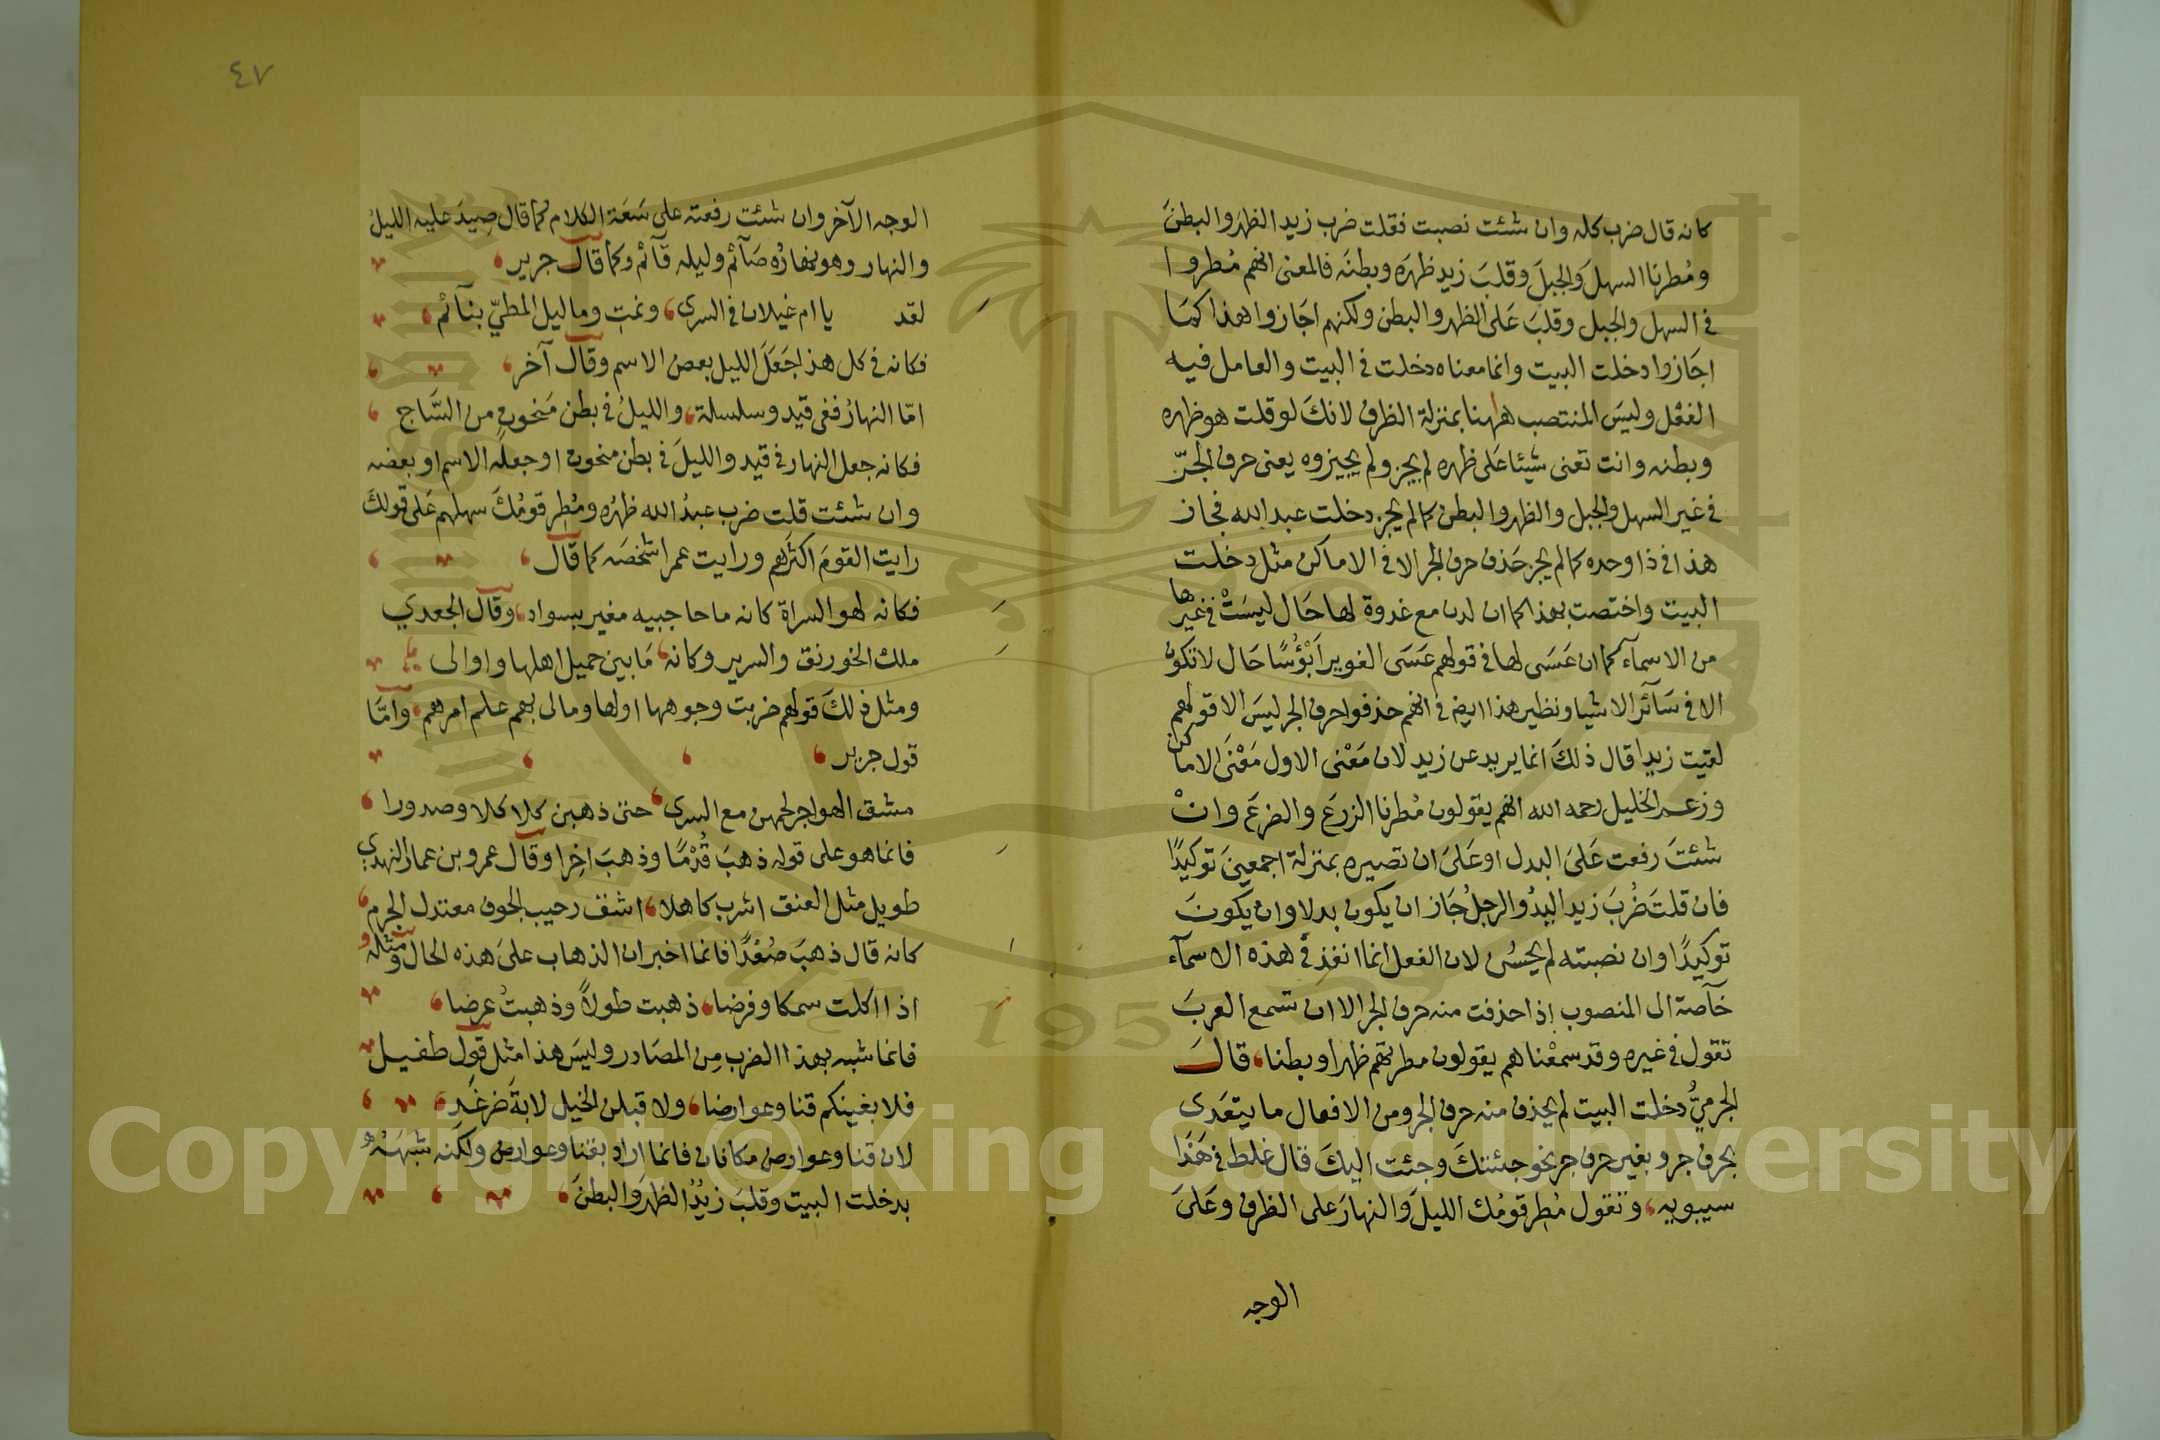 كانه قال ضرب كله وان شئت نصبت فقلت ضرب زيد الظهرَ والبطنَ
ومُطرنا السهلَ والجبلَ وقلبَ زيد ظهرَه وبطنَه فالمعنى انهم مُطروا
في السهل والجبل وقلبَ عَلى الظهر والبطن ولكنهم اجَازوا هذا كمَا
اجَازوا دخلت البيت وانما معناه دخلت في البيت والعامل فيه
الفعْل وليسَ المنتصب هٰهنا بمنزلة الظرف لانكَ لو قلت هو ظهره
وبطنه وانت تعنى شيئا عَلى ظهره لم يجز ولم يجيزوه يعنى حرف الجرّ
في غير السهل والجبل والظهر والبطن كما لم يجز دخلت عبد الله فجاز
هذا في ذا وحده كما لم يجز حَذف حرف الجر الا في الاماكن مثل دخلت
البيت واختصت بهذا كما ان لدن مع غدوة لها حَال ليسَتْ في غيرها
من الاسمآء كما ان عَسَى لها في قولهم عَسَى الغوير اَبْؤُسًا حَال لا تكون
الا في سَآئر الاشيا ونظير هذا ايضا في انهم حذفوا حرف الجر ليسَ الا قولهم
لقيت زيدا قال ذلكَ انما يريد عن زيد لان مَعْنى الاول مَعْنَى الاماكن
وزعم الخليل رحمه الله انهم يقولون مُطرنا الزرعَ والضرعَ وانْ
شئتَ رفعت عَلىَ البدل او عَلىَ ان تصيره بمنزلة اجمعينَ توكيدًا
فان قلتَ ضُربَ زيد اليدُ والرجلُ جَاز ان يكون بدلا وان يكونَ
توكيدًا وان نصبته لم يحسُن لان الفعل انما انفذ في هذه الاسمآء
خآصة الى المنصوب اذا حذفت منه حرف الجر الا ان تسمع العربَ
تقول في غيره وقد سمعْناهم يقولون مطرتهم ظهرا وبطنا، قالَ
الجرميُّ دخلت البيت لم يحذف منه حرف الجر ومن الافعال ما يتعَدى
بحرف جر وبغير حرف جر نحو جئتكَ وجئت اليكَ قال غلط في هَذَا
سيبويه، وتقول مُطر قومُك الليلَ والنهارَ على الظرف وعَلىَ
الوجه
٤٧
الوجه الآخر وان شئت رفعته على سَعَة الكلام كما قال صِيدَ عليه الليلُ
والنهار وهو نهارُه صَآئم وليله قآئم وكما قال جرير،
لقد يا ام غيلان في السرى، ونمتِ وما ليل المطيّ بنآئم،
فكانه في كل هذا جَعَلَ الليل بعض الاسم وقال آخر،
امّا النهارُ ففى قيد وسلسلة، والليلُ في بطن مَنحوتٍ من السَّاج
فكانه جعل النهار في قيد والليلَ في بطن منحوت او جعله الاسم او بعضه
وان شئت قلت ضرب عبدُ الله ظهرُه ومُطر قومُكَ سهلهم عَلى قولكَ
رايت القومَ اكثرَهم ورايت عمرا شخصَه كما قال،
فكانه لهو السراة كانه ما حاجبيه مغير بسواد، وقال الجعدي
ملك الخورنق والسرير وكانه، مَا بين حمير اهلها واوالى
ومثل ذلكَ قولهم ضربت وجوهها اولها ومالى بهم علم امرهم، وامَّا
قول جرير،
مشق الهواجر لحمهن مع السرى، حتى ذهبن كلاكلا وصدورا،
فانما هو على قوله ذهبَ قُدْمًا وذهبَ اخِرا وقال عمرو بن عمار النهدي
طويل مثل العنق اشرب كاهلا، اشف رحيب الجوف معتدل الجرم،
كانه قال ذهبَ صُعْدًا فانما اخبر ان الذهاب علىَ هذه الحال ومثله
اذا اكلت سمكا وفرضا، ذهبت طولًا وذهبتُ عرضا،
فانما شبه بهذا الضرب مِن المصَادر وليسَ هذا مثل قول طفيل
فلا بغينكم قنا وعوارضا، ولا قبلن الخيل لابةَ ضرغَد،
لان قنا وعوارض مكانان فانما اراد بقنا وعوارض ولكنه شبَهَهُ
بدخلت البيت وقلبَ زيدٌ الظهرَ والبطنَ،